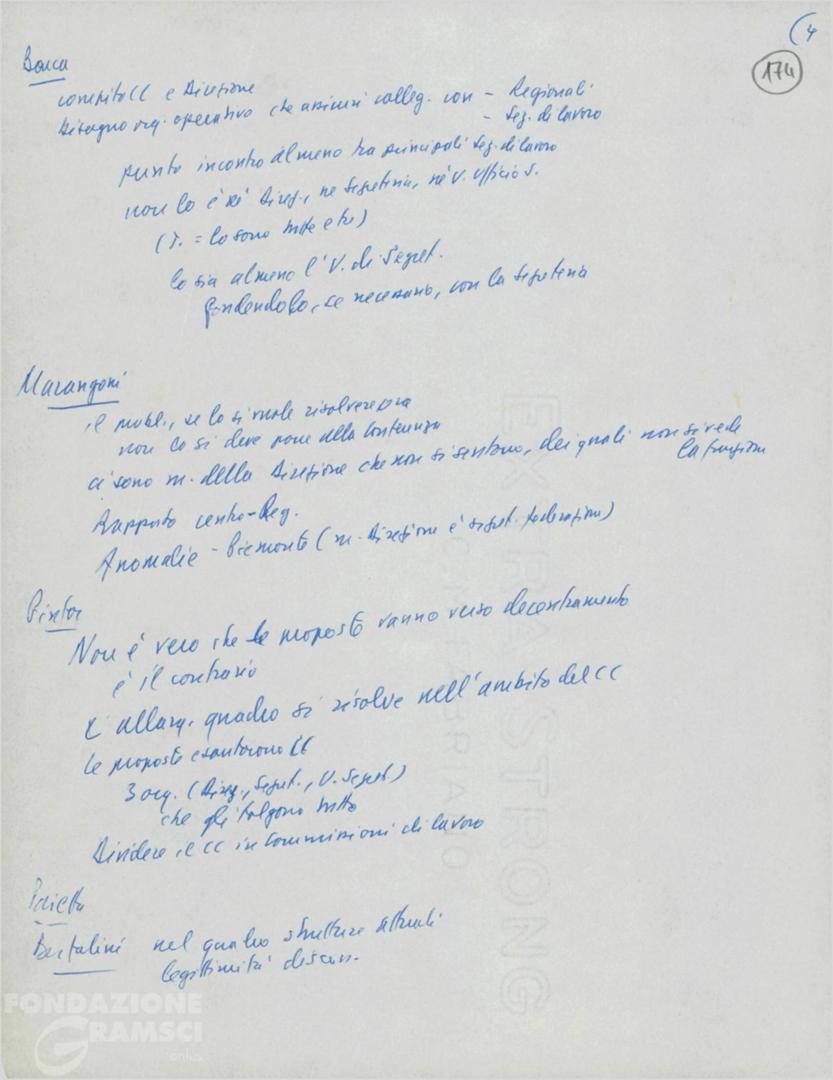 (4
174
Bonca
compito CC e Direzione
Bisogno org. operativo che assicuri colleg. con - Regionali
- Sez. di lavoro
punto incontro almeno tra principali Sez. di lavoro
non lo è nè Direz., ne Segreteria, nè V. Ufficio S.
(I. = lo sono tutte e tre)
lo sia almeno l'U. di Segret.
fondendolo, se necessario, con la Segreteria
Marangoni
il probl., se lo si vuole risolvere ora
non lo si deve porre alla Conferenza
ci sono m. della Direzione che non si sentono, dei quali non si vede
la funzione
Rapporto centro-Reg.
Anomalie - Piemonte (m. Direzione è segret. federazione)
Pintor
Non è vero che le proposte vanno verso decentramento
è il contrario
L'allarg. quadro si risolve nell'ambito del CC
Le proposte esautorano CC
3 org. (Direz., Segret., U. Segret)
che gli tolgono tutto
Dividere il CC in Commissioni di lavoro
Pajetta
Bertolini nel quadro strutture attuali
legittimità discuss.
EXTRA STRONG
FABRIANO
FONDAZIONE
GRAMSCI
onlus